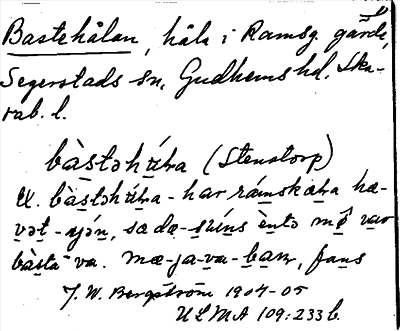 Bastehålan, håla i Ramsg. gärde,
Segerstads sn, Gudhems hd. Ska-
rab. l.
bàstəhúra (Stenstorp)
U. bàstəhúra - har rámskæra hæ-
vət - ajə́n, sæ dæ - svíns èntə mê̱ var
bàsta va. mæ - ja - va - barn, fans
J. W. Bergström 1904-05
ULMA 109:233 b.